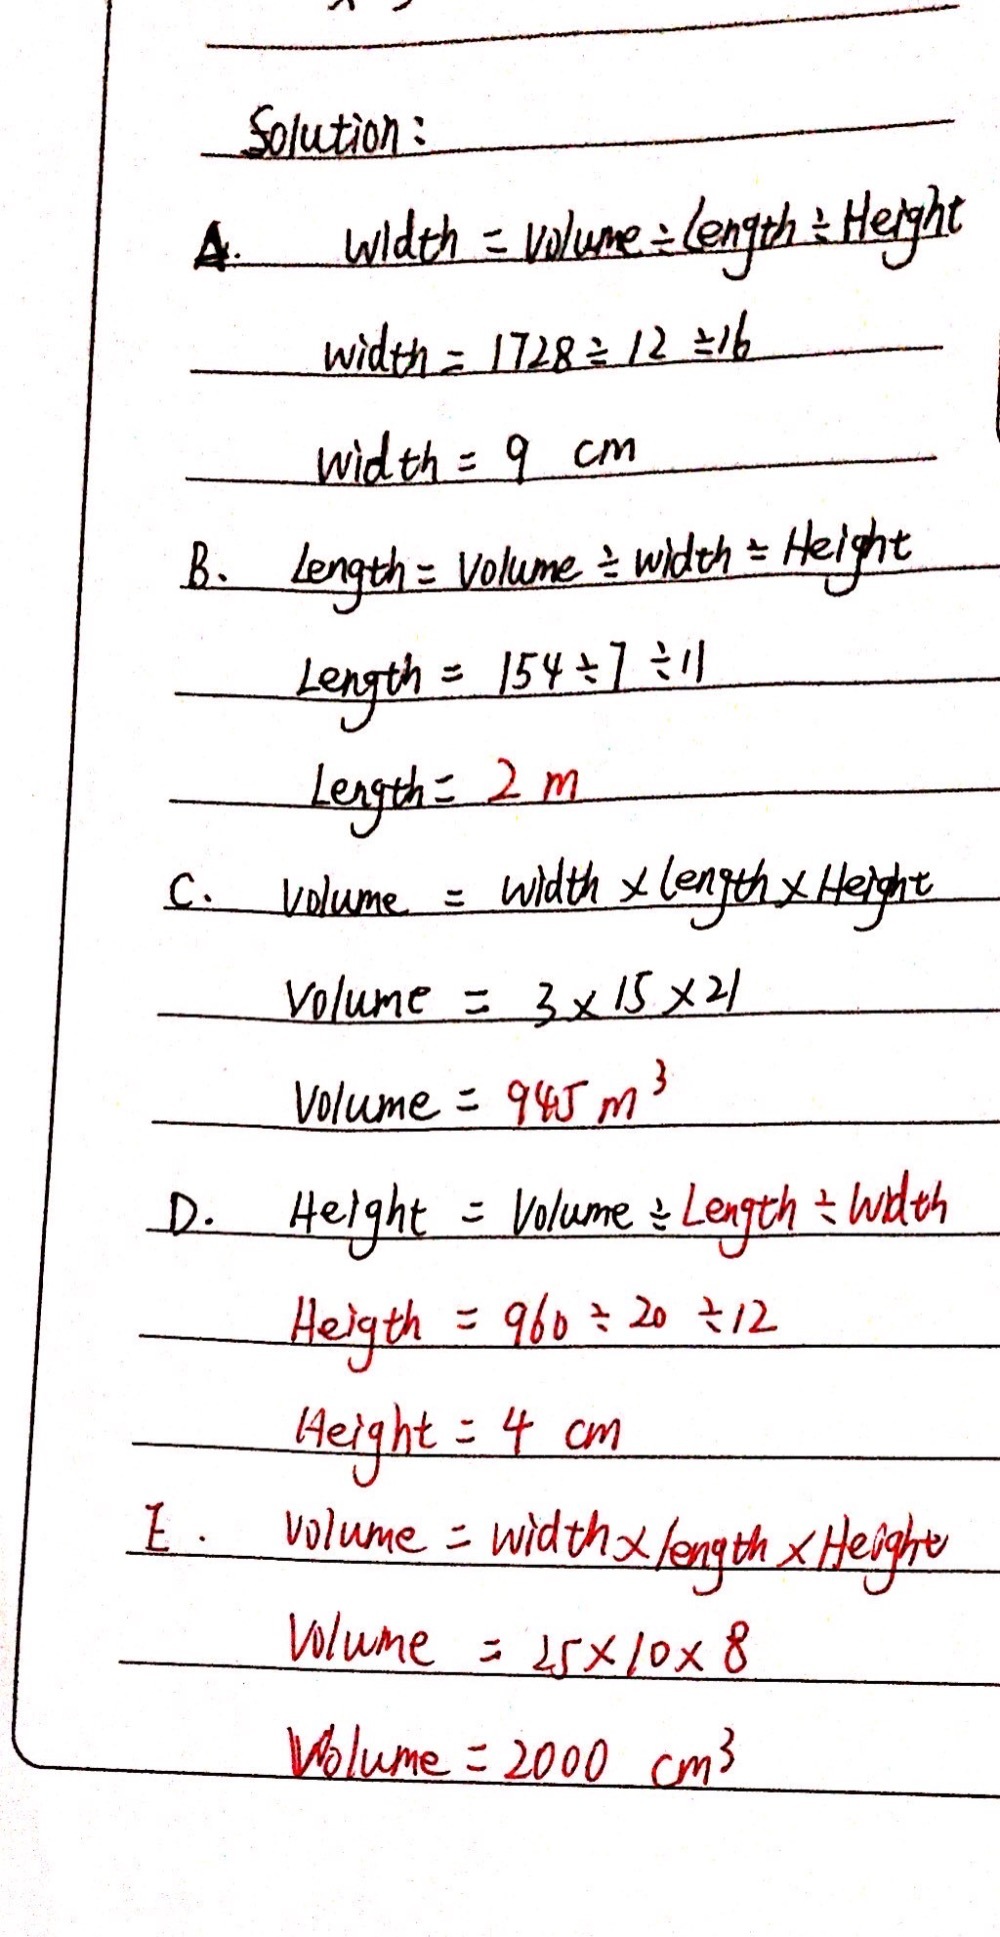 Solution:
A. Width = Volume ÷ Length ÷ Height
Width = 1728 ÷ 12 ÷ 16
Width = 9 cm
B. Length = Volume ÷ Width ÷ Height
Length = 154 ÷ 7 ÷ 11
Length = 2 m
C. Volume = Width × Length × Height
Volume = 3 × 15 × 21
Volume = 945 m³
D. Height = Volume ÷ Length ÷ Width
Heigth = 960 ÷ 20 ÷ 12
Height = 4 cm
E. Volume = Width × Length × Height
Volume = 25 × 10 × 8
Volume = 2000 cm³